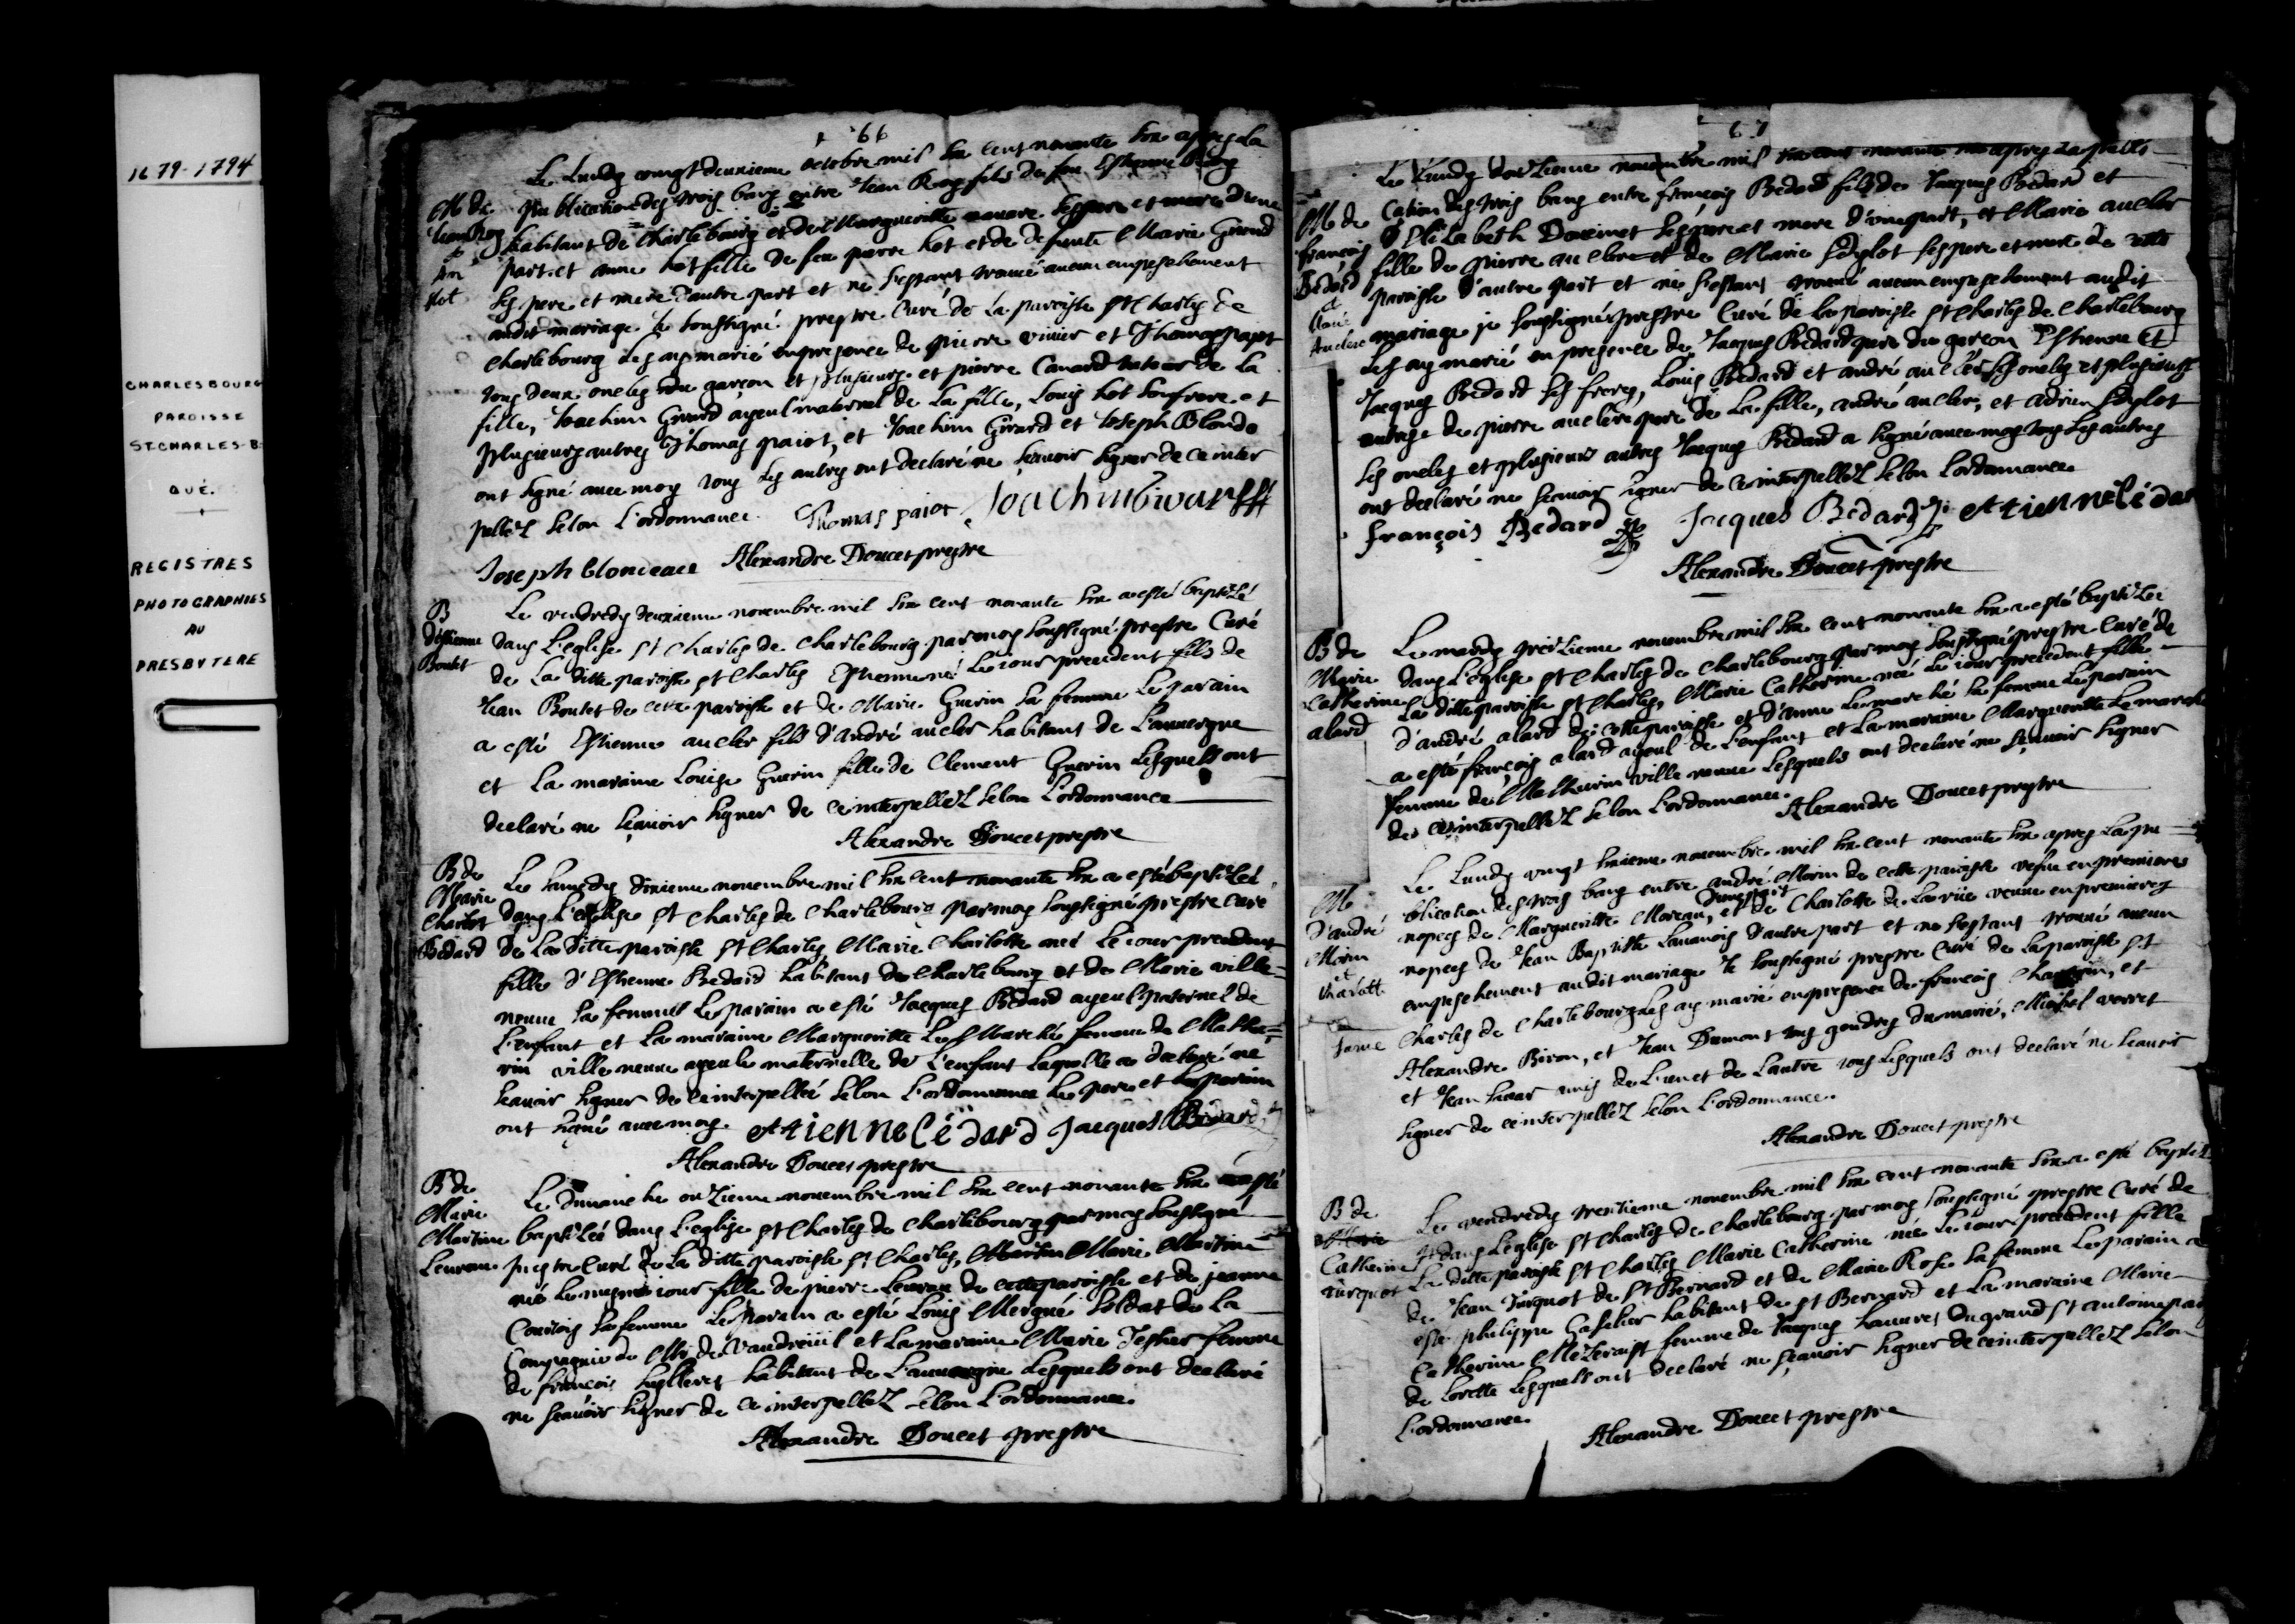 1679-1794
CHARLESBOURG
PAROISSE
ST-CHARLES-B.
QUÉ.
REGISTRES
PHOTOGRAPHIÉS
AU
PRESBYTERE
66
Le Lundy vingt deuxieme octobre mil six cent nonante six apres La
M de publication des trois bans entre Jean Roy fils de feu Estienne Roy
Jean Roy habitant de Charlebourg et de Marguerite navare ses pere et mere d'une
et part et anne hot fille de feu pierre hot et de defunte Marie Girard
An ses pere et mere d'autre part et ne s'estant trouvé aucun empeschement
hot audit mariage Je soussigné prestre Curé de La paroisse st Charles de
Charlebourg Les ay marié en presence de pierre vivier et Thomas pajot
tous deux oncles du garçon et plusieurs et pierre Canard tuteur de La
fille, Joachim Girard ayeul maternel de La fille, Louis hot son frere et
plusieurs autres Thomas paiot, et Joachim Girard et Joseph Blondo
ont signé avec moy tous Les autres ont declaré ne sçavoir signer de ce inter
pellez selon L'ordonnance. Thomas paiot Joachin Girard
Joseph blondeau Alexandre Doucet prestre
B Le vendredy deuxieme novembre mil six cent nonante six a esté baptizé
d'estienne dans L'eglise st Charles de Charlebourg par moy soussigné prestre Curé
Boutet de La ditte paroisse st Charles Estienne né Le iour precedent fils de
Jean Boutet de cette paroisse et de Marie Guerin sa femme Le parain
a esté Estienne aucler fils d'André aucler habitant de L'auvergne
et La maraine Louise Guerin fille de Clement Guerin Lesquels ont
declaré ne sçavoir signer de ce interpellez selon L'ordonnance
Alexandre Doucet prestre
B de Le samedy dixieme novembre mil six cent nonante six a esté baptizée
Marie dans L'eglise st Charles de Charlebourg par moy soussigné prestre Curé
Charlot
Bedard de La ditte paroisse st Charles Marie Charlotte née Le iour precedent
fille d'Estienne Bedard habitant de Charlebourg et de Marie ville
neuve sa femme Le parain a esté Jacques Bedard ayeul paternel de
L'enfant et La maraine Marguerite Le Marché femme de Mathu=
rin ville neuve ayeule maternelle de L'enfant Laquelle a declaré ne
sçavoir signer de ce interpellée selon L'ordonnance Le pere et Le parain
ont signé avec moy. ettienne bédard Jacques Bedard
Alexandre Doucet prestre
B de Le dimanche onzieme novembre mil six cent nonante six a esté
Marie
Martine baptizée dans L'eglise st Charles de Charlebourg par moy soussigné
Levrau prestre Curé de La ditte paroisse st Charles, Marie Martine
née Le mesme iour fille de pierre Levrau de cette paroisse et de jeanne
Courtois sa femme Le parain a esté Louis Mergué soldat de La
Compagnie de Mr de Vaudreuil et La maraine Marie Tesner femme
de françois habitant de L'auvergne Lesquels ont declaré
ne sçavoir signer de ce interpellez selon L'ordonnance.
Alexandre Doucet prestre
67
Le Lundy douzieme novembre mil six cent nonante six apres La publi
M de cation des trois bans entre françois Bedard fils de Jacques Bedard et
françois d'Elizabeth Doucinet ses pere et mere d'une part, et Marie aucler
Bedard fille de pierre aucler et de Marie Sédylot ses pere et mere de cette
et paroisse d'autre part et ne s'estant trouvé aucun empeschement audit
Marie mariage je soussigné prestre Curé de La paroisse st Charles de Charlebourg
Auclere Les ay marié en presence de Jacques Bedard pere du garçon Estienne et
Jacques Bedard ses freres, Louis Bedard et andré aucler ses oncles et plusieurs
autres de pierre auclere pere de La fille, andré aucler, et Adrien Sédylot
ses oncles et plusieurs autres Jacques Bedard a signé avec moy tous Les autres
ont declaré ne sçavoir signer de ce interpellez selon L'ordonnance
françois Bedard Jacques Bedard ettienne bédar
Alexandre Doucet prestre
B de Le mardy treizieme novembre mil six cent nonante six a esté baptizée
Marie dans L'eglise st Charles de Charlebourg par moy soussigné prestre Curé de
Catherine La ditte paroisse st Charles, Marie Catherine née Le iour precedent fille
alard d'andré alard de cette paroisse et d'anne Le marché sa femme Le parain
a esté françois alard ayeul de L'enfant et La maraine Marguerite Le marché
femme de Mathurin ville neuve Lesquels ont declaré ne sçavoir signer
de ce interpellez selon L'ordonnance. Alexandre Doucet prestre
Le Lundy vingt sixieme novembre mil six cent nonante six apres La pu
M blication des trois bans entre andré Morin de cette paroisse vefue en premieres
d'une part
d'andré nopces de Marguerite Moreau, et de Charlotte de La rüe veuve en premieres
Morin nopces de Jean Baptiste Lananois d'autre part et ne s'estant trouvé aucun
et empeschement audit mariage Je soussigné prestre Curé de La paroisse st
Charlotte Charles de Charlebourg Les ay marié en presence de françois et
Alexandre Biron, et Jean Dumont tous gendres du marié, Michel verret
et Jean savar amis de L'un et de L'autre tous Lesquels ont declaré ne sçavoir
signer de ce interpellez selon L'ordonnance.
Alexandre Doucet prestre
B de Le vendredy trentieme novembre mil six cent nonante six a esté baptizé
Marie dans L'eglise st Charles de Charlebourg par moy soussigné prestre Curé de
Catherine La ditte paroisse st Charles Marie Catherine née Le iour precedent fille
turquot de Jean Turquot de st Bernard et de Marie Rose sa femme Le parain a
esté philippe Gaselier habitant de st Bernard et La maraine Marie
Catherine Mezeraist femme de Jacques du grand st antoine
de Lorette Lesquels ont declaré ne sçavoir signer de ce interpellez selon
L'ordonnance.
Alexandre Doucet prestre